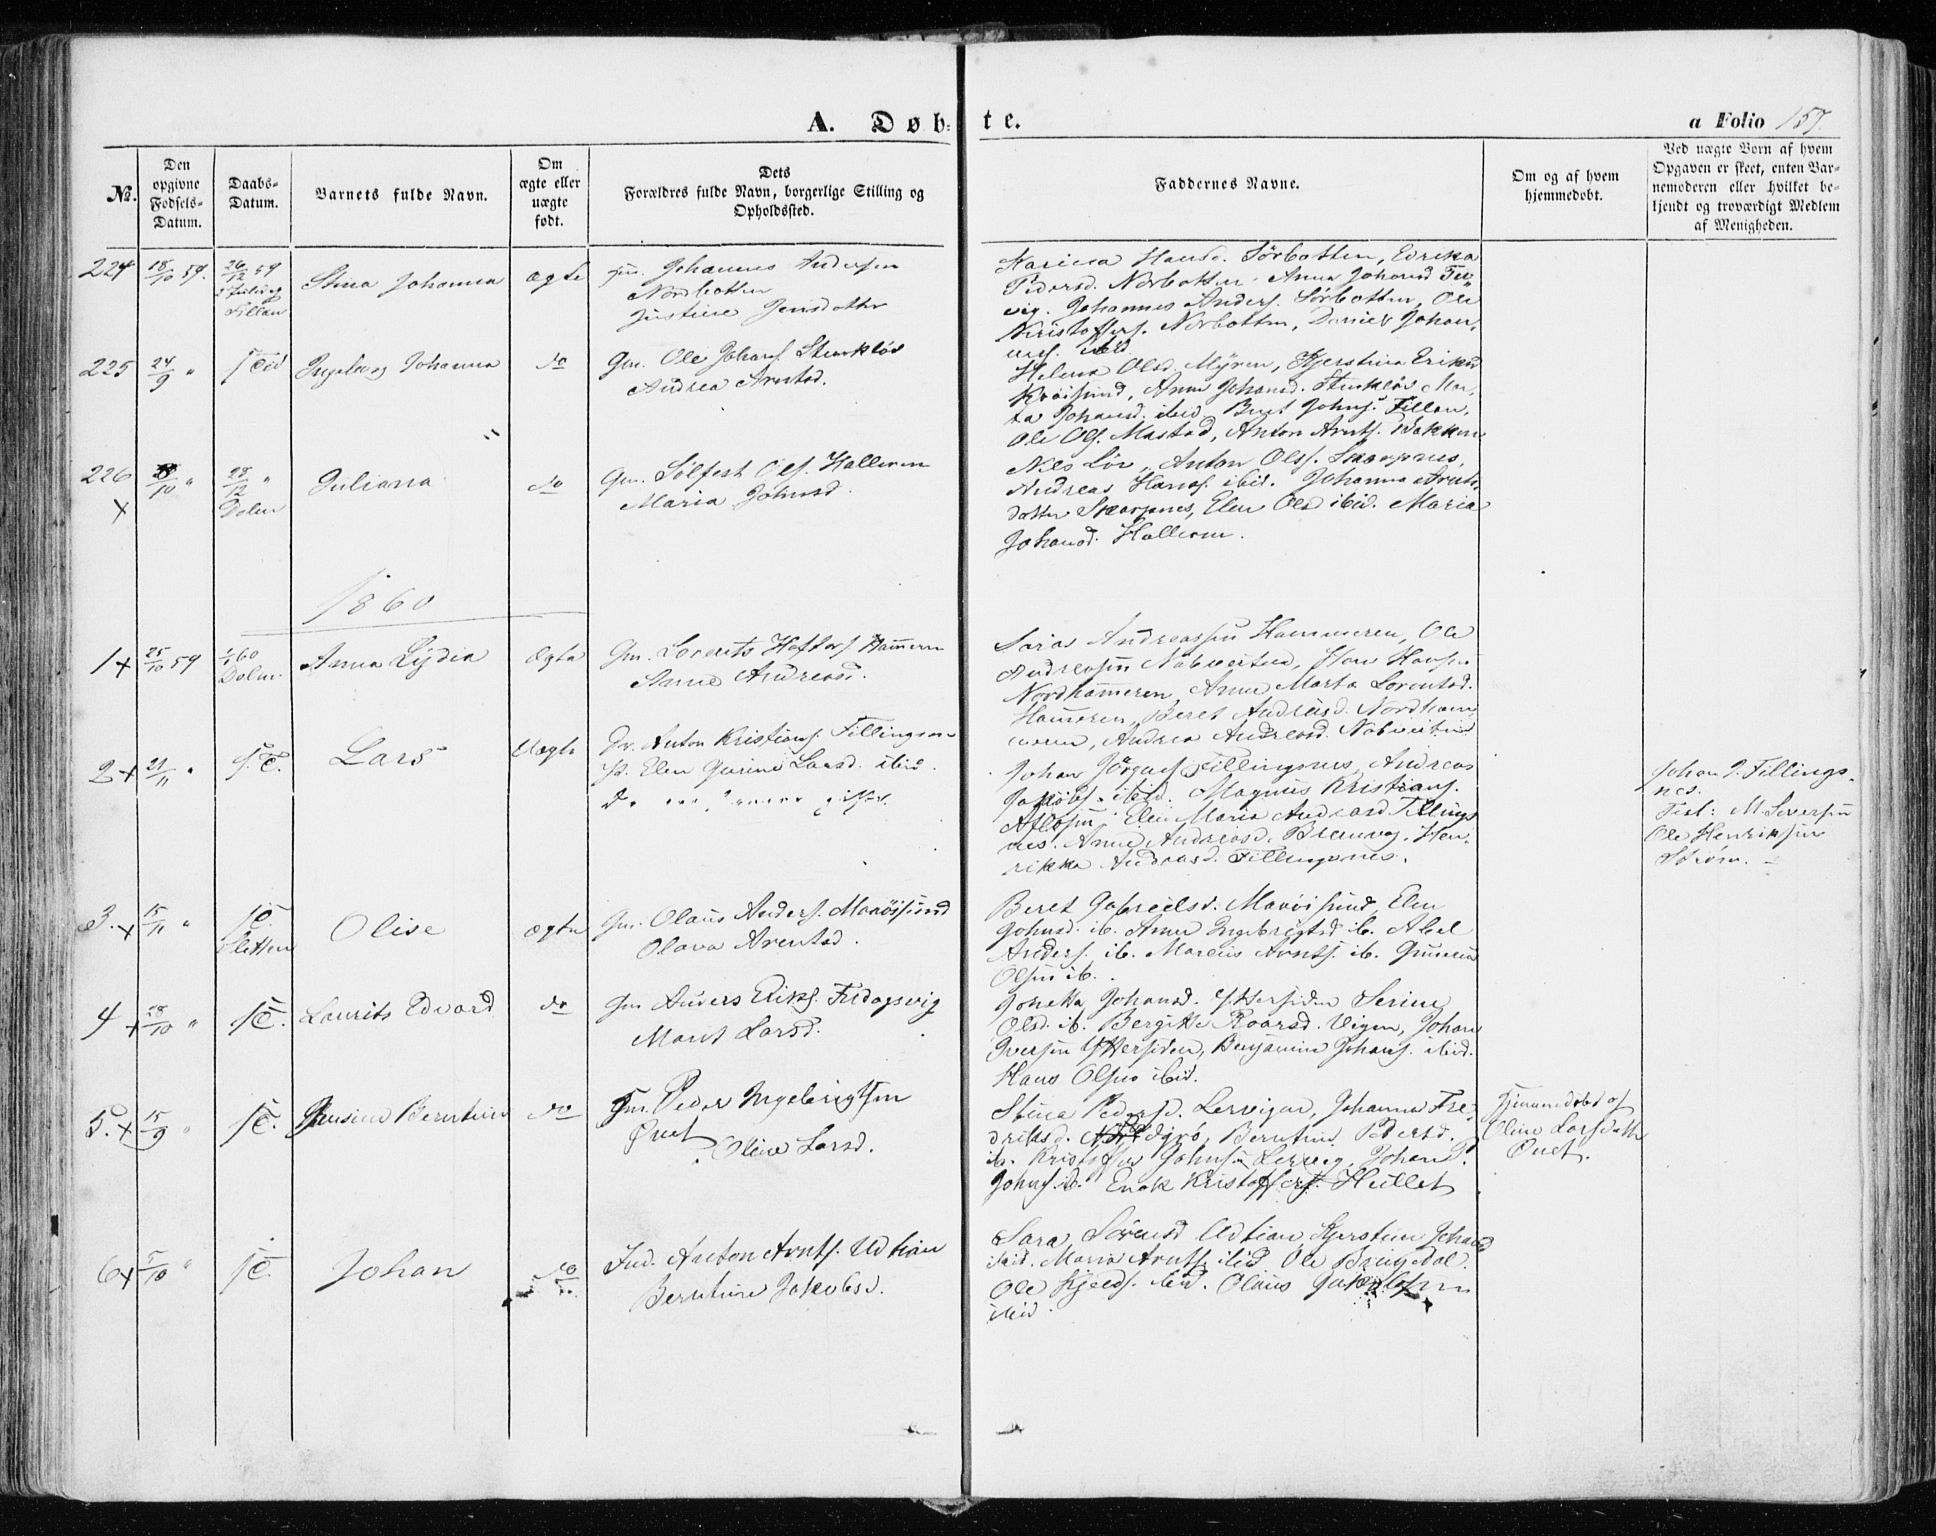 A. Døb- te. a Folio 157.
№.
Den opgivne Fødsels-Datum.
Daabs-Datum.
Barnets fulde Navn.
Om ægte eller uægte født.
Dets Forældres fulde Navn, borgerlige Stilling og Opholdssted.
Faddernes Navne.
Om og af hvem hjemmedøbt.
Ved uægte Børn af hvem Opgaven er skeet, enten Barnemoderen eller hvilket bekjendt og troværdigt Medlem af Menigheden.
224 18/10 59. 26/12 59 Fillan Stina Johanna ægte Gm. Johannes Andersen
Nordbotten
Justine Jensdatter
Hansd. Sörbotten, Edrika
Pedersd. Norbotten. Anna Johansd
vig. Johannes Anders. Sörbotten, Ole
Kristoffers. Norbotten, Daniel Johan,
ibid
225 24/9 " Ingeborg Johanna do Gm. Ole Johans.
Andrea Arntsd.
Helena Olsd. Myren, Kjerstina Eriksd
Anne Johansd.
ta Johansd. ibid. Johns. Fillan,
Ole Ols. Mastad, Anton Arnts. Bakken
226 x /10 " 28/12 " Dolm Juliana do Gm. Sölfest Ols. Halleren
Maria Johnsd.
Nils Anton Olss. Skarpnes,
Andreas Hans. ibid. Johanna Arnts
datter Skarpnes, Elen Olsd ibid. Maria
Johansd. Halleren.
1860
1 x 25/10 59 1/1 60 Dolm Anna Lydia Ægte Gm. Lorents Hammern
Andreasd.
Andreassen Hammeren, Ole
Andreasen Hans Hansen
Nordhammeren, Anne Marta Lorentsd.
Hammeren, Beret Nordham
meren, Andrea Andreasd.
2 x /11 " Lars Uægte Anton Kristians. Fillingsnes
P. Elen Gurine Larsd. ibid.
Johan Fillingsnes, Andreas
Jakobs. ibid. Magnus Kristians.
Elen Maria Andreasd Fillings
nes. Anne Andreasd. Hen
rikka Andreasd. Fillingsnes.
Johan J. Fillings-
nes.
Test: M. Seversen
Ole Henriksen
Ström.
3. x 15/11 " Sletten Olise Ægte Gm. Olaus Anders. Marøisund
Olava Arentsd.
Beret Gabrielsd. Marøisund, Elen
Johnsd. ib. Anne Ingebrigtsd ib. Abel
Anders. ib. Marcus Arnts. ib.
Olsen ib.
4 x 28/10 " Laurits Edvard do Gm Anders Eriks. Fredagsvig
Marit Larsd.
Jonetta Johansd. Yttersiden Serine
Olsd. ib. Bergitte Roarsd. Vigen, Johan
Iversen Yttersiden, Benjamin Johans. ibid.
Hans Olsen ibid.
5. x 15/9 " Berntine do Gm. Peder Ingebrigtsen
Øvet
Oline Larsd.
Stina Pedersd. Lervigen, Johanna Fre
driksd. Berntine Pedersd.
ib. Kristoffer Johnsen Lervig, Johan P.
Johns. ib. Enok Kristoffers. Hullet
Hjemmedøbt af
Oline Larsdatter
Øvet.
6 x 5/10 " Johan do Ind. Anton Arnts. Udtian
Berntine Jakobsd.
Sara Sörensd Udtian Kjerstine Johansd
ibid. Maria Arnts. ibid Ole
Ole Kjelds. ibid. Olaus Jakobsen
ibid.